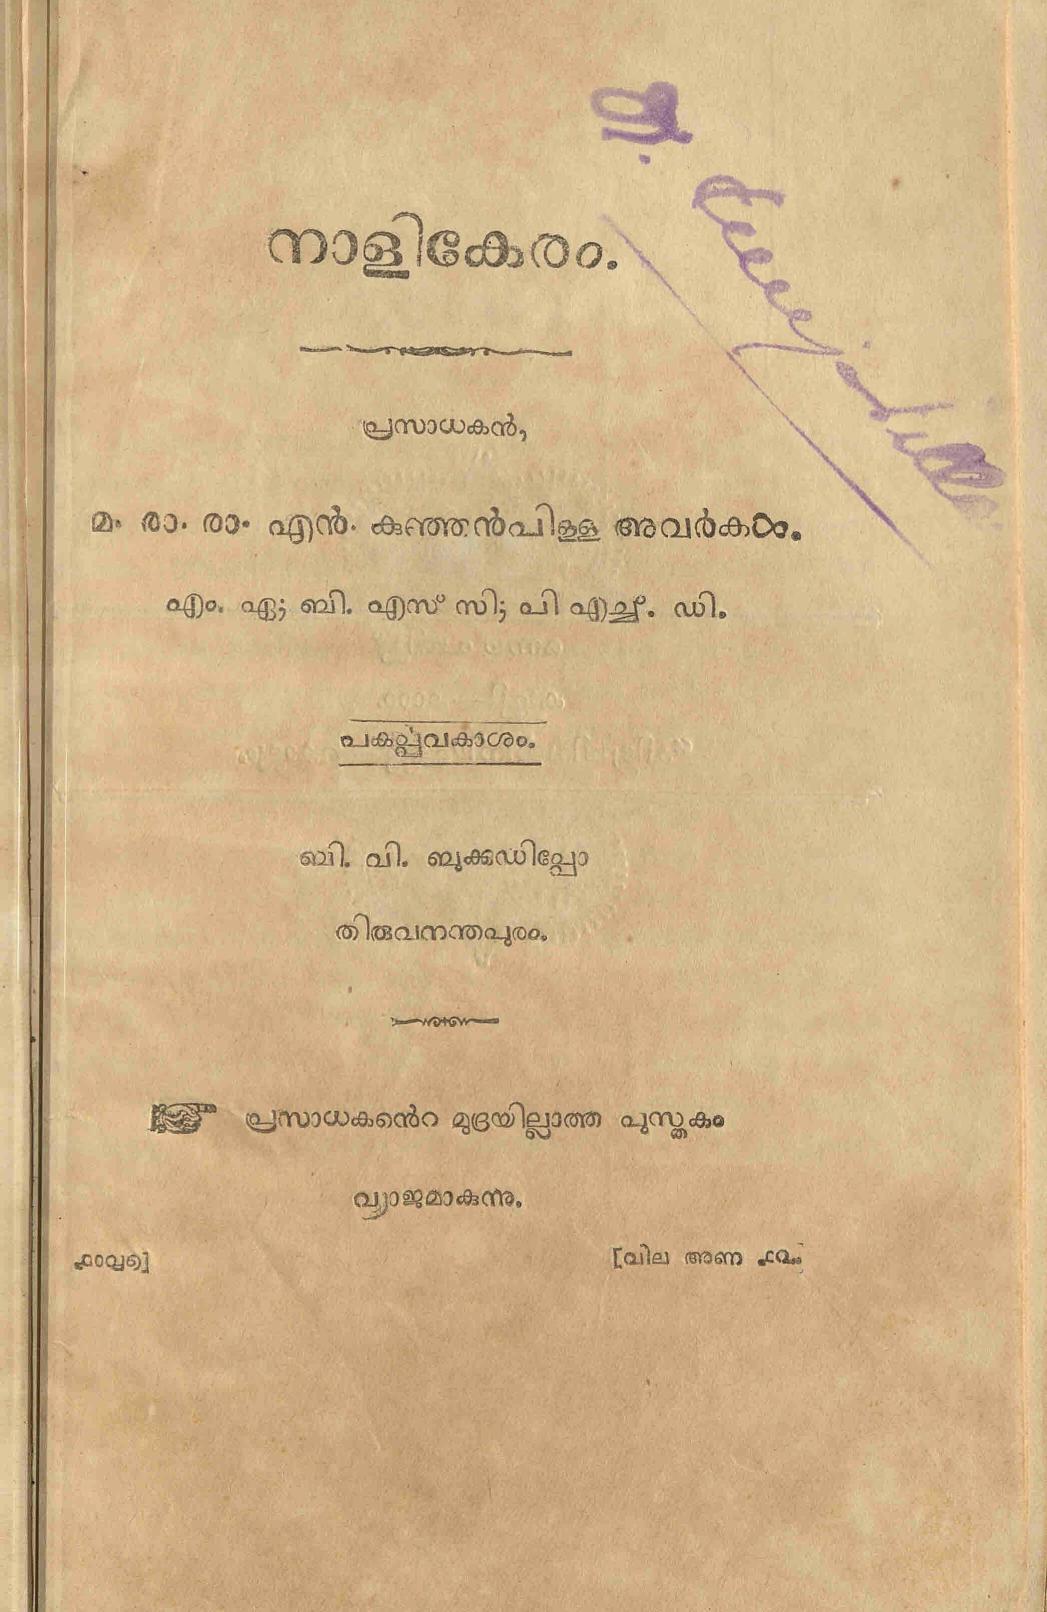 നാളികേരം.
പ്രസാധകൻ,
മ. രാ. രാ. എൻ. കുഞ്ഞൻപിള്ള അവർകൾ.
എം. ഏ; ബി. എസ് സി; പി എച്ച്. ഡി.
പകർപ്പവകാശം.
ബി. വി. ബുക്കഡിപ്പോ
തിരുവനന്തപുരം.
പ്രസാധകൻെറ മുദ്രയില്ലാത്ത പുസ്തകം
വ്യാജമാകുന്നു.
[വില അണ